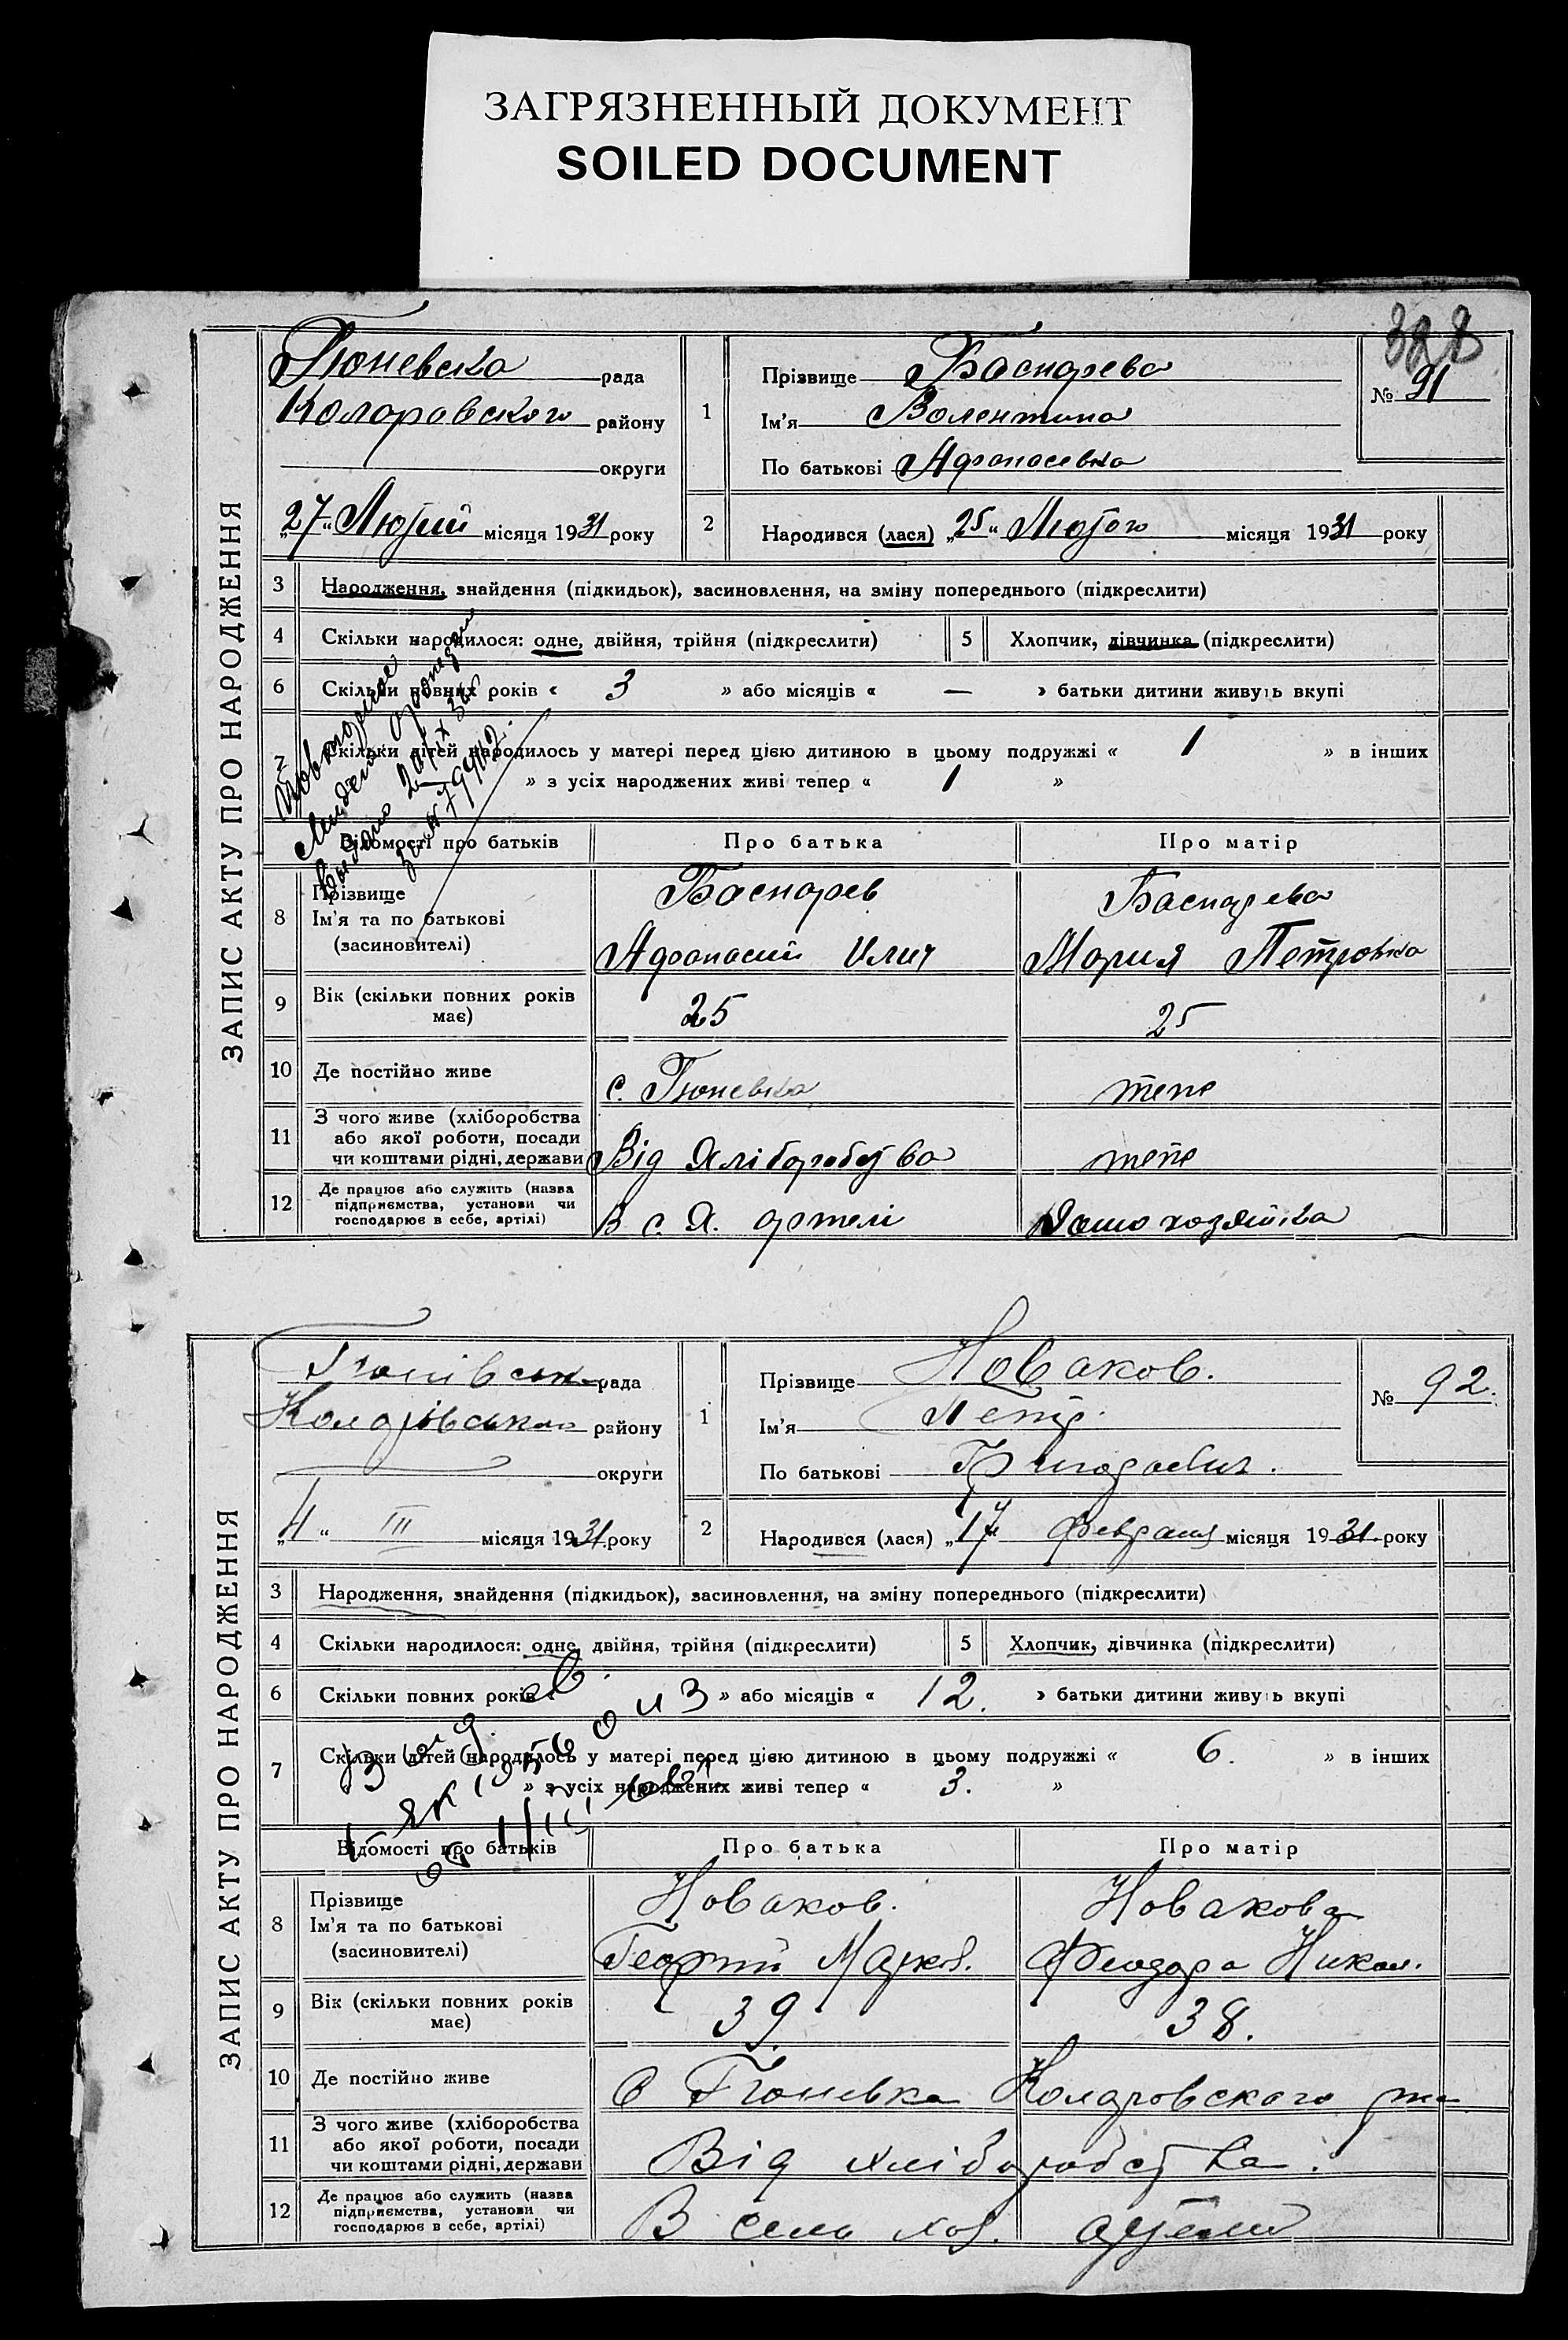 ЗАГРЯЗНЕННЫЙ ДОКУМЕНТ
SOILED DOCUMENT
328
ЗАПИС АКТУ ПРО НАРОДЖЕННЯ
Гюневска рада
Коларовского району
округи
„27“ Лютий місяця 1931 року
1
Прізвище Баснарева
Ім'я Валентина
По батькові Афанасевна
№ 91
2 Народився (лася) „25“ Лютого місяця 1931 року
3 Народження, знайдення (підкидьок), засиновлення, на зміну попереднього (підкреслити)
4 Скільки народилося: одне, двійня, трійня (підкреслити) 5 Хлопчик, дівчинка (підкреслити)
6 Скільки повних років « 3 » або місяців « — » батьки дитини живуть вкупі
7 Скільки дітей народилось у матері перед цією дитиною в цьому подружжі « 1 » в інших
» з усіх народжених живі тепер « 1 »
Відомості про батьків Про батька Про матір
8 Прізвище
Ім'я та по батькові
(засиновителі)
Баснарев
Афанасий Илич
Баснарева
Мария Петровна
9 Вік (скільки повних років має) 25 25
10 Де постійно живе с. Гюневка теж
11 З чого живе (хліборобства
або якої роботи, посади
чи коштами рідні, держави
Від хліборобства теж
12 Де працює або служить (назва
підприємства, установи чи
господарює в себе, артілі)
В с. х. артелі Домохозяйка
ЗАПИС АКТУ ПРО НАРОДЖЕННЯ
Гюнівськ рада
Коларівського району
округи
„4“ III місяця 1931 року
1
Прізвище Новаков.
Ім'я Петр.
По батькові Григорьевич.
№ 92.
2 Народився (лася) „17“ Февраля місяця 1931 року
3 Народження, знайдення (підкидьок), засиновлення, на зміну попереднього (підкреслити)
4 Скільки народилося: одне, двійня, трійня (підкреслити) 5 Хлопчик, дівчинка (підкреслити)
6 Скільки повних років » або місяців « 12. » батьки дитини живуть вкупі
7 Скільки дітей народилось у матері перед цією дитиною в цьому подружжі « 6. » в інших
» з усіх народжених живі тепер « 3. »
Відомості про батьків Про батька Про матір
8 Прізвище
Ім'я та по батькові
(засиновителі)
Новаков.
Георгий Марков.
Новакова
Феодора Никол.
9 Вік (скільки повних років має) 39. 38.
10 Де постійно живе С Гюневка Коларовского
11 З чого живе (хліборобства
або якої роботи, посади
чи коштами рідні, держави
Від хліборобства.
12 Де працює або служить (назва
підприємства, установи чи
господарює в себе, артілі)
В сель хоз. артели